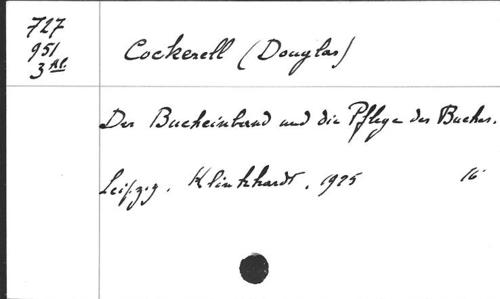 727
951
3 Al.
Cockerell (Douglas)
Der Bucheinband und die Pflege des Buches.
Leipzig. Klinkhardt. 1925 16